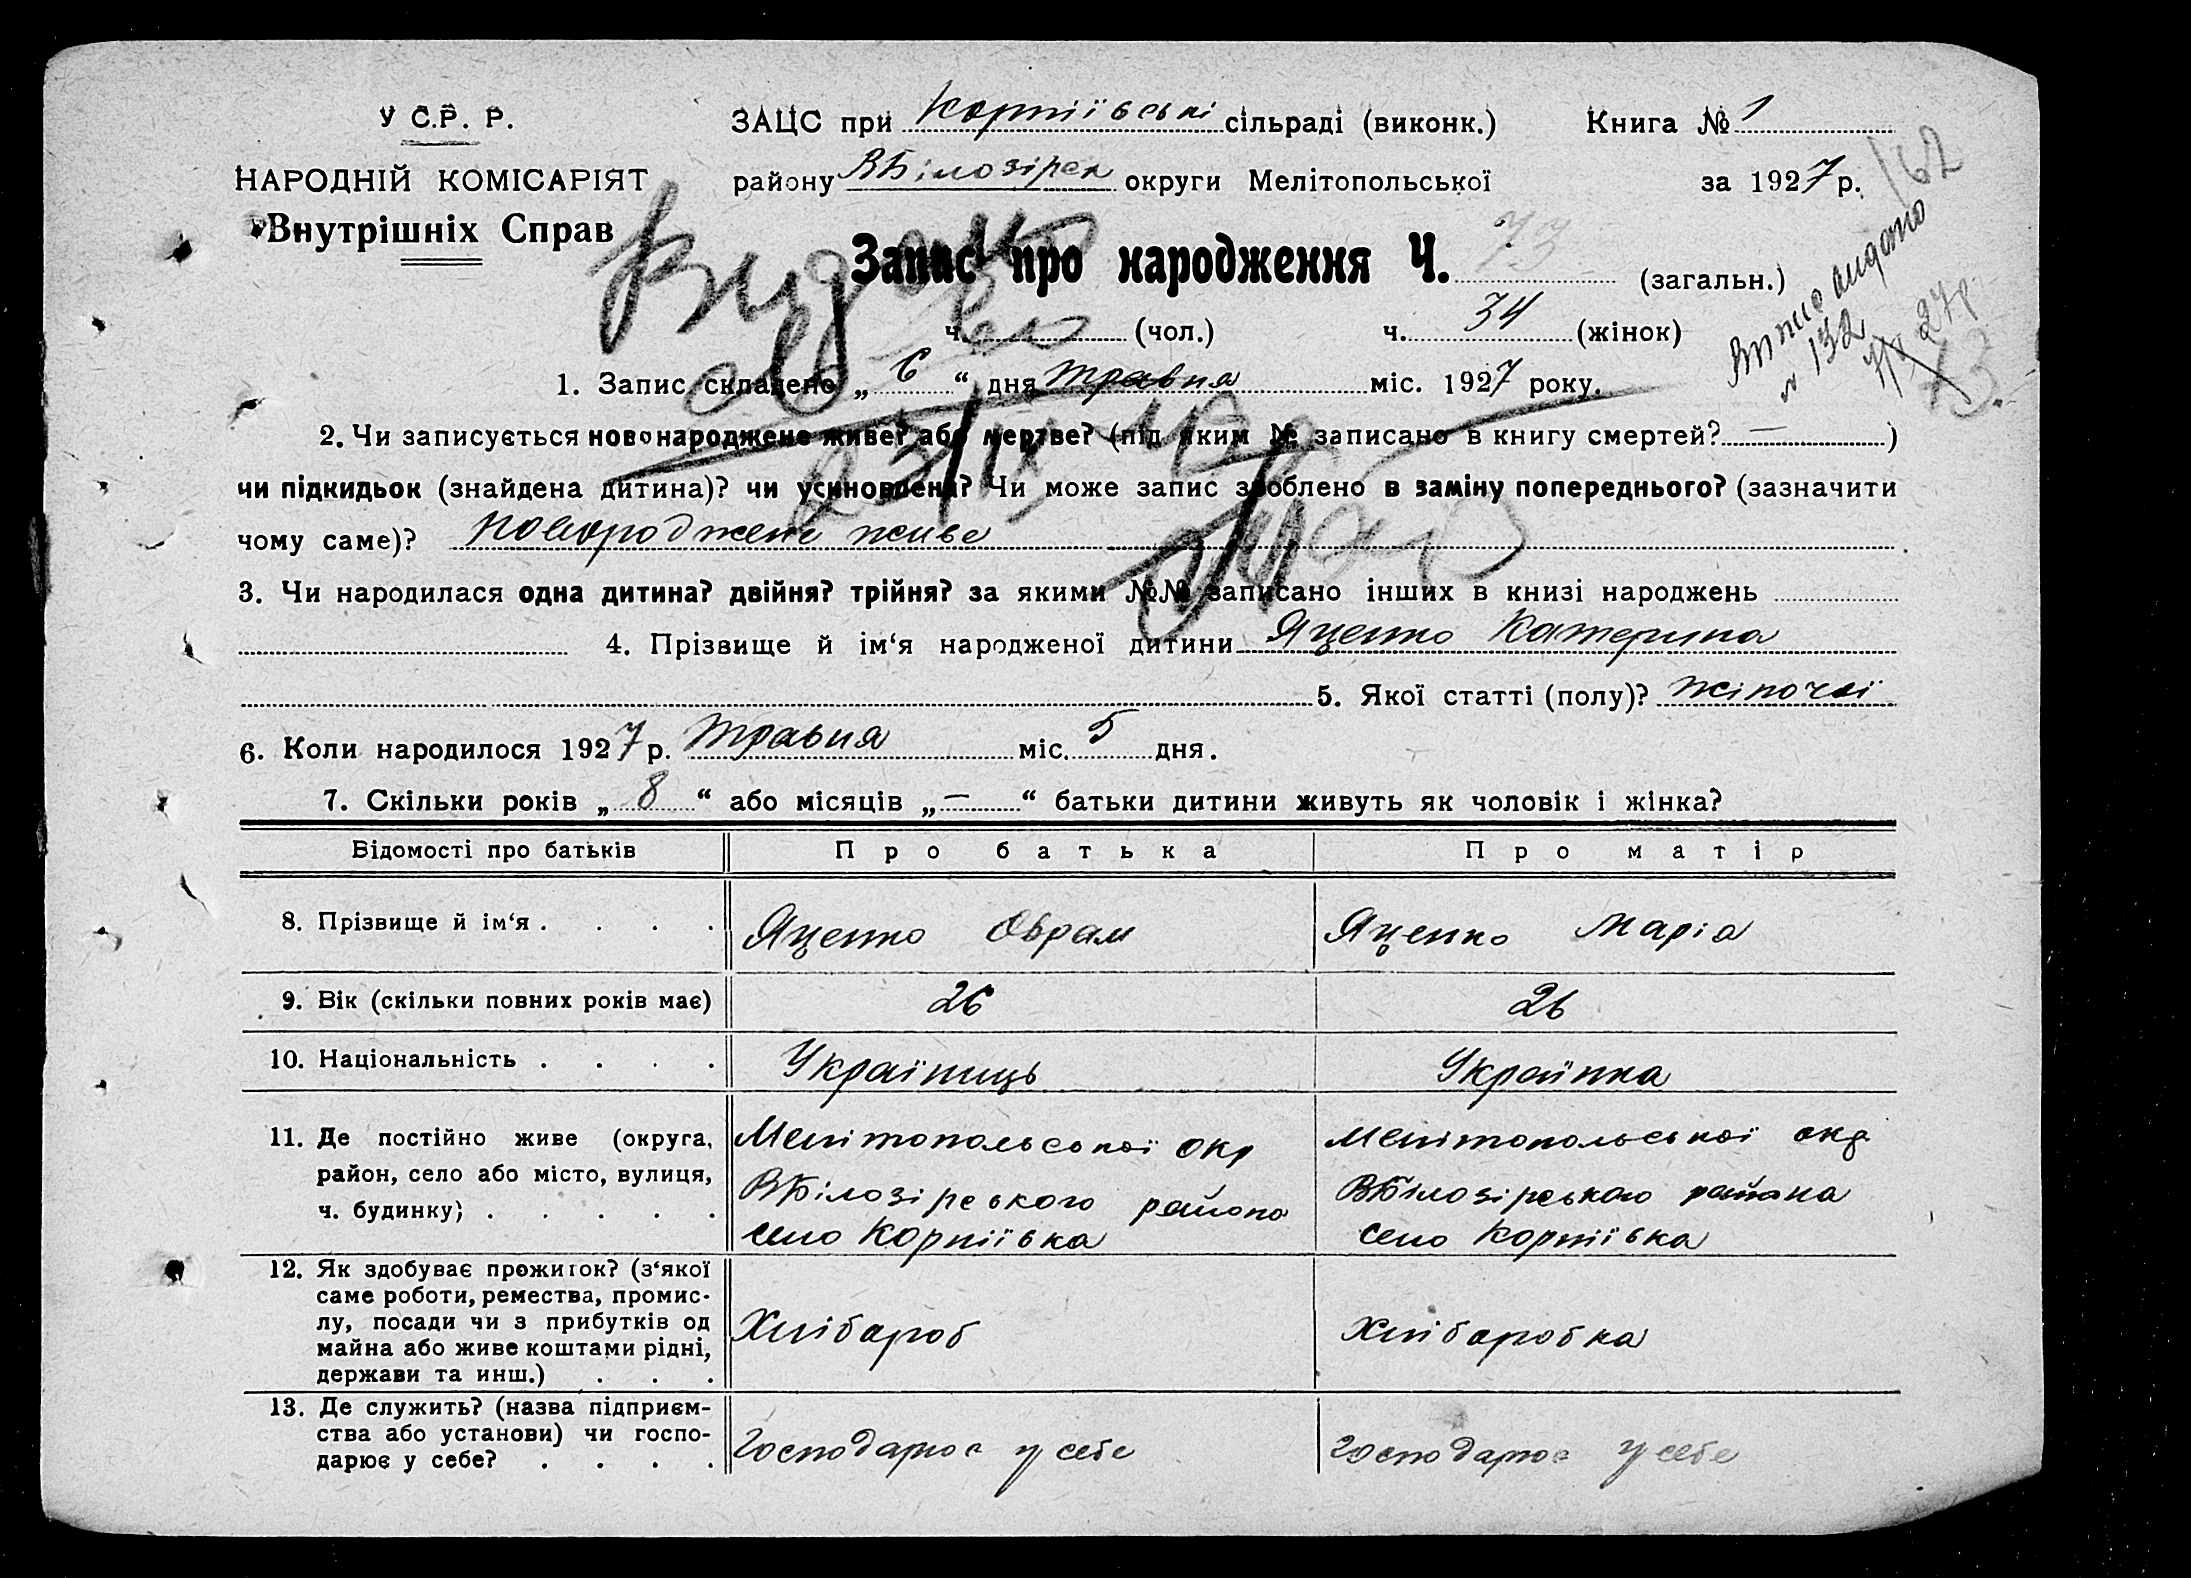 У С.Р. Р.
ЗАЦС при Корніївські сільраді (виконк.) Книга № 1
НАРОДНІЙ КОМІСАРІЯТ
району ВБілозірск округи Мелітопольської за 1927 р. 162
Внутрішніх Справ
Видано
Запис про народження Ч. 73 (загальн.)
ч. (чол.) ч. 34 (жінок)
видано
№ 132
27р
73.
1. Запис складено „ 6 “ дня травня міс. 1927 року.
2. Чи записується новонароджене живе? або мертве? (під яким № записано в книгу смертей? — )
чи підкидьок (знайдена дитина)? чи усиновлена? Чи може запис зроблено в заміну попереднього? (зазначити
чому саме)? новороджене живе
3. Чи народилася одна дитина? двійня? трійня? за якими №№ записано інших в книзі народжень
4. Прізвище й ім‘я народженої дитини Яценко Катерина
5. Якої статті (полу)? жіночої
6. Коли народилося 1927 р. травня міс. 5 дня.
7. Скільки років „ 8 “ або місяців „ — “ батьки дитини живуть як чоловік і жінка?
Відомості про батьків Про батька Про матір
8. Прізвище й ім‘я . . . . Яценко Оврам Яценко Маріа
9. Вік (скільки повних років має) 26 26
10. Національність . . . . Україниць Українка
11. Де постійно живе (округа, Мелітопольської окр Мелітопольської окр
район, село або місто, вулиця, ВБілозірського района ВБілозірського района
ч. будинку) . . . . . село Корніївка село Корніївка
12. Як здобуває прожиток? (з‘якої
саме роботи, ремества, промис-
лу, посади чи з прибутків од Хлібароб Хлібаробка
майна або живе коштами рідні,
держави та инш.) . . .
13. Де служить? (назва підприєм-
ства або установи) чи госпо- Господарює у себе Господарює у себе
дарює у себе? . . . .